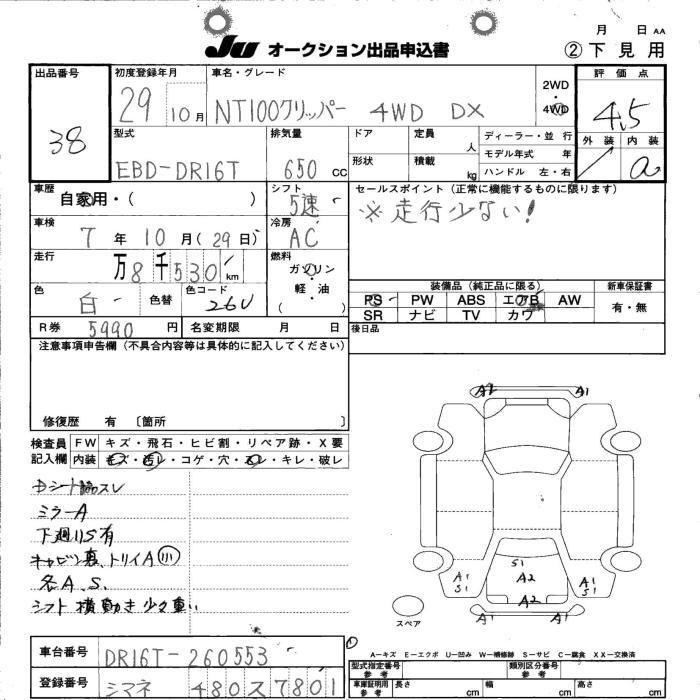 月 日 AA
JU オークション出品申込書 ②下見用
出品番号 38
初度登録年月 29 10月
車名・グレード NT100クリッパー 4WD DX
2WD・4WD
評価点 4.5
外装 内装 a
型式 EBD-DR16T
排気量 650 CC
ドア 定員 人
形状 積載 kg
ディーラー・並行
モデル年式 年
ハンドル 左・右
車歴 自家用・( )
シフト 5速
セールスポイント(正常に機能するものに限ります)
※走行少ない!
車検 7年10月(29日)
冷房 AC
走行 万8千530km
燃料 ガソリン・軽油( )
装備品(純正品に限る) 新車保証書
PS PW ABS エアB AW 有・無
SR ナビ TV カワ
色 白 色替 色コード 26U
R券 5990円 名変期限 月 日 後日品
注意事項申告欄(不具合内容等は具体的に記入してください)
修復歴 有 〔箇所 〕
検査員記入欄
FW キズ・飛石・ヒビ割・リペア跡・X要
内装 キズ・汚レ・コゲ・穴・スレ・キレ・破レ
Dシート脇スレ
ミラーA
下廻りS有
キャビン裏、トリイA小
各A.S.
シフト横動き少々重い
A2 A1
A1 S1
S1 A2 A2
A1 S1
A1 A1
スペア
A-キズ E-エクボ U-凹み W-補修跡 S-サビ C-腐食 XX-交換済
車台番号 DR16T-260553
登録番号 シマネ 480 ス 7801
型式指定番号 参考 類別区分番号 参考
車庫証明用 参考 長さ cm 幅 cm 高さ cm